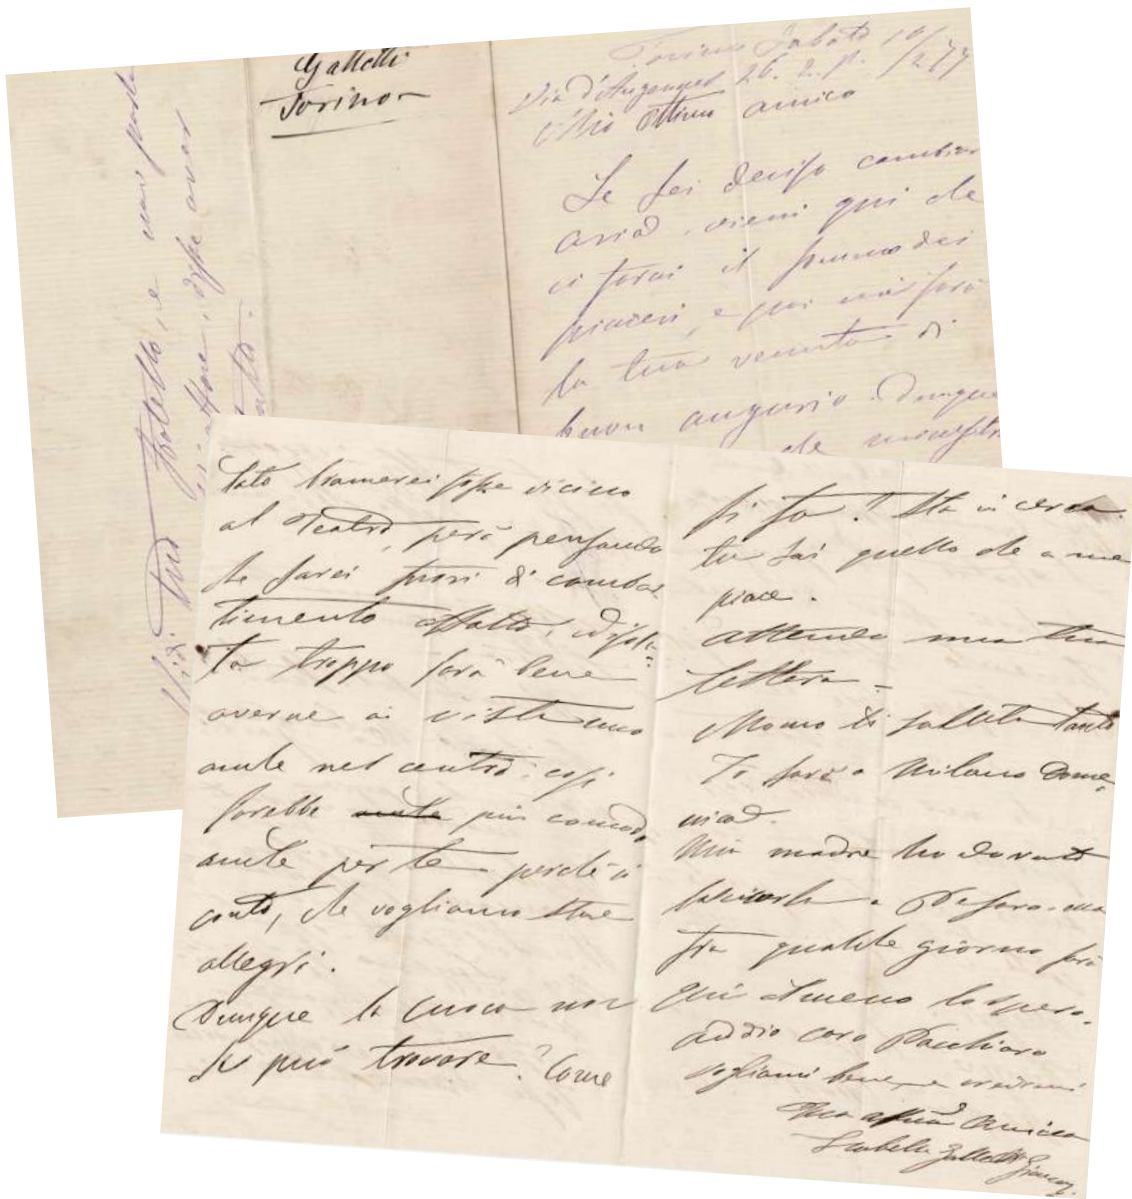 Galletti
Torino
Torino Sabato 10/2 77
Via d'Angennes 26. 2. p.
Mio Ottimo amico
Se sei deciso cambiar
aria, vieni qui che
ci farai il sommo dei
piaceri, e poi mi sarà
la tua venuta di
buon augurio. Dunque
che
tuo fratello, e
lato bramerei fosse vicino
al Teatro, però pensando
che sarei fuori di combat
timento affatto, distan=
ta troppo sarà bene
averne in vista uno
anche nel centro; così
sarebbe anche più comodo
anche per te perchè in
conto, che vogliamo stare
allegri.
Dunque la cuoca non
si può trovare? Come
si fa? Sta in cerca.
tu sai quello che a me
piace.
Attendo una tua
lettera -
Momo ti saluta tanto
Io sarò a Milano Dome,
nica.
Mia madre ho dovuto
lasciarla a Pesaro, ma
fra qualche giorno sarà
qui almeno lo spero.
Addio caro Pacchiaro
vogliami bene, e credimi
Tua affma Amica
Isabella Galletti Gianoli